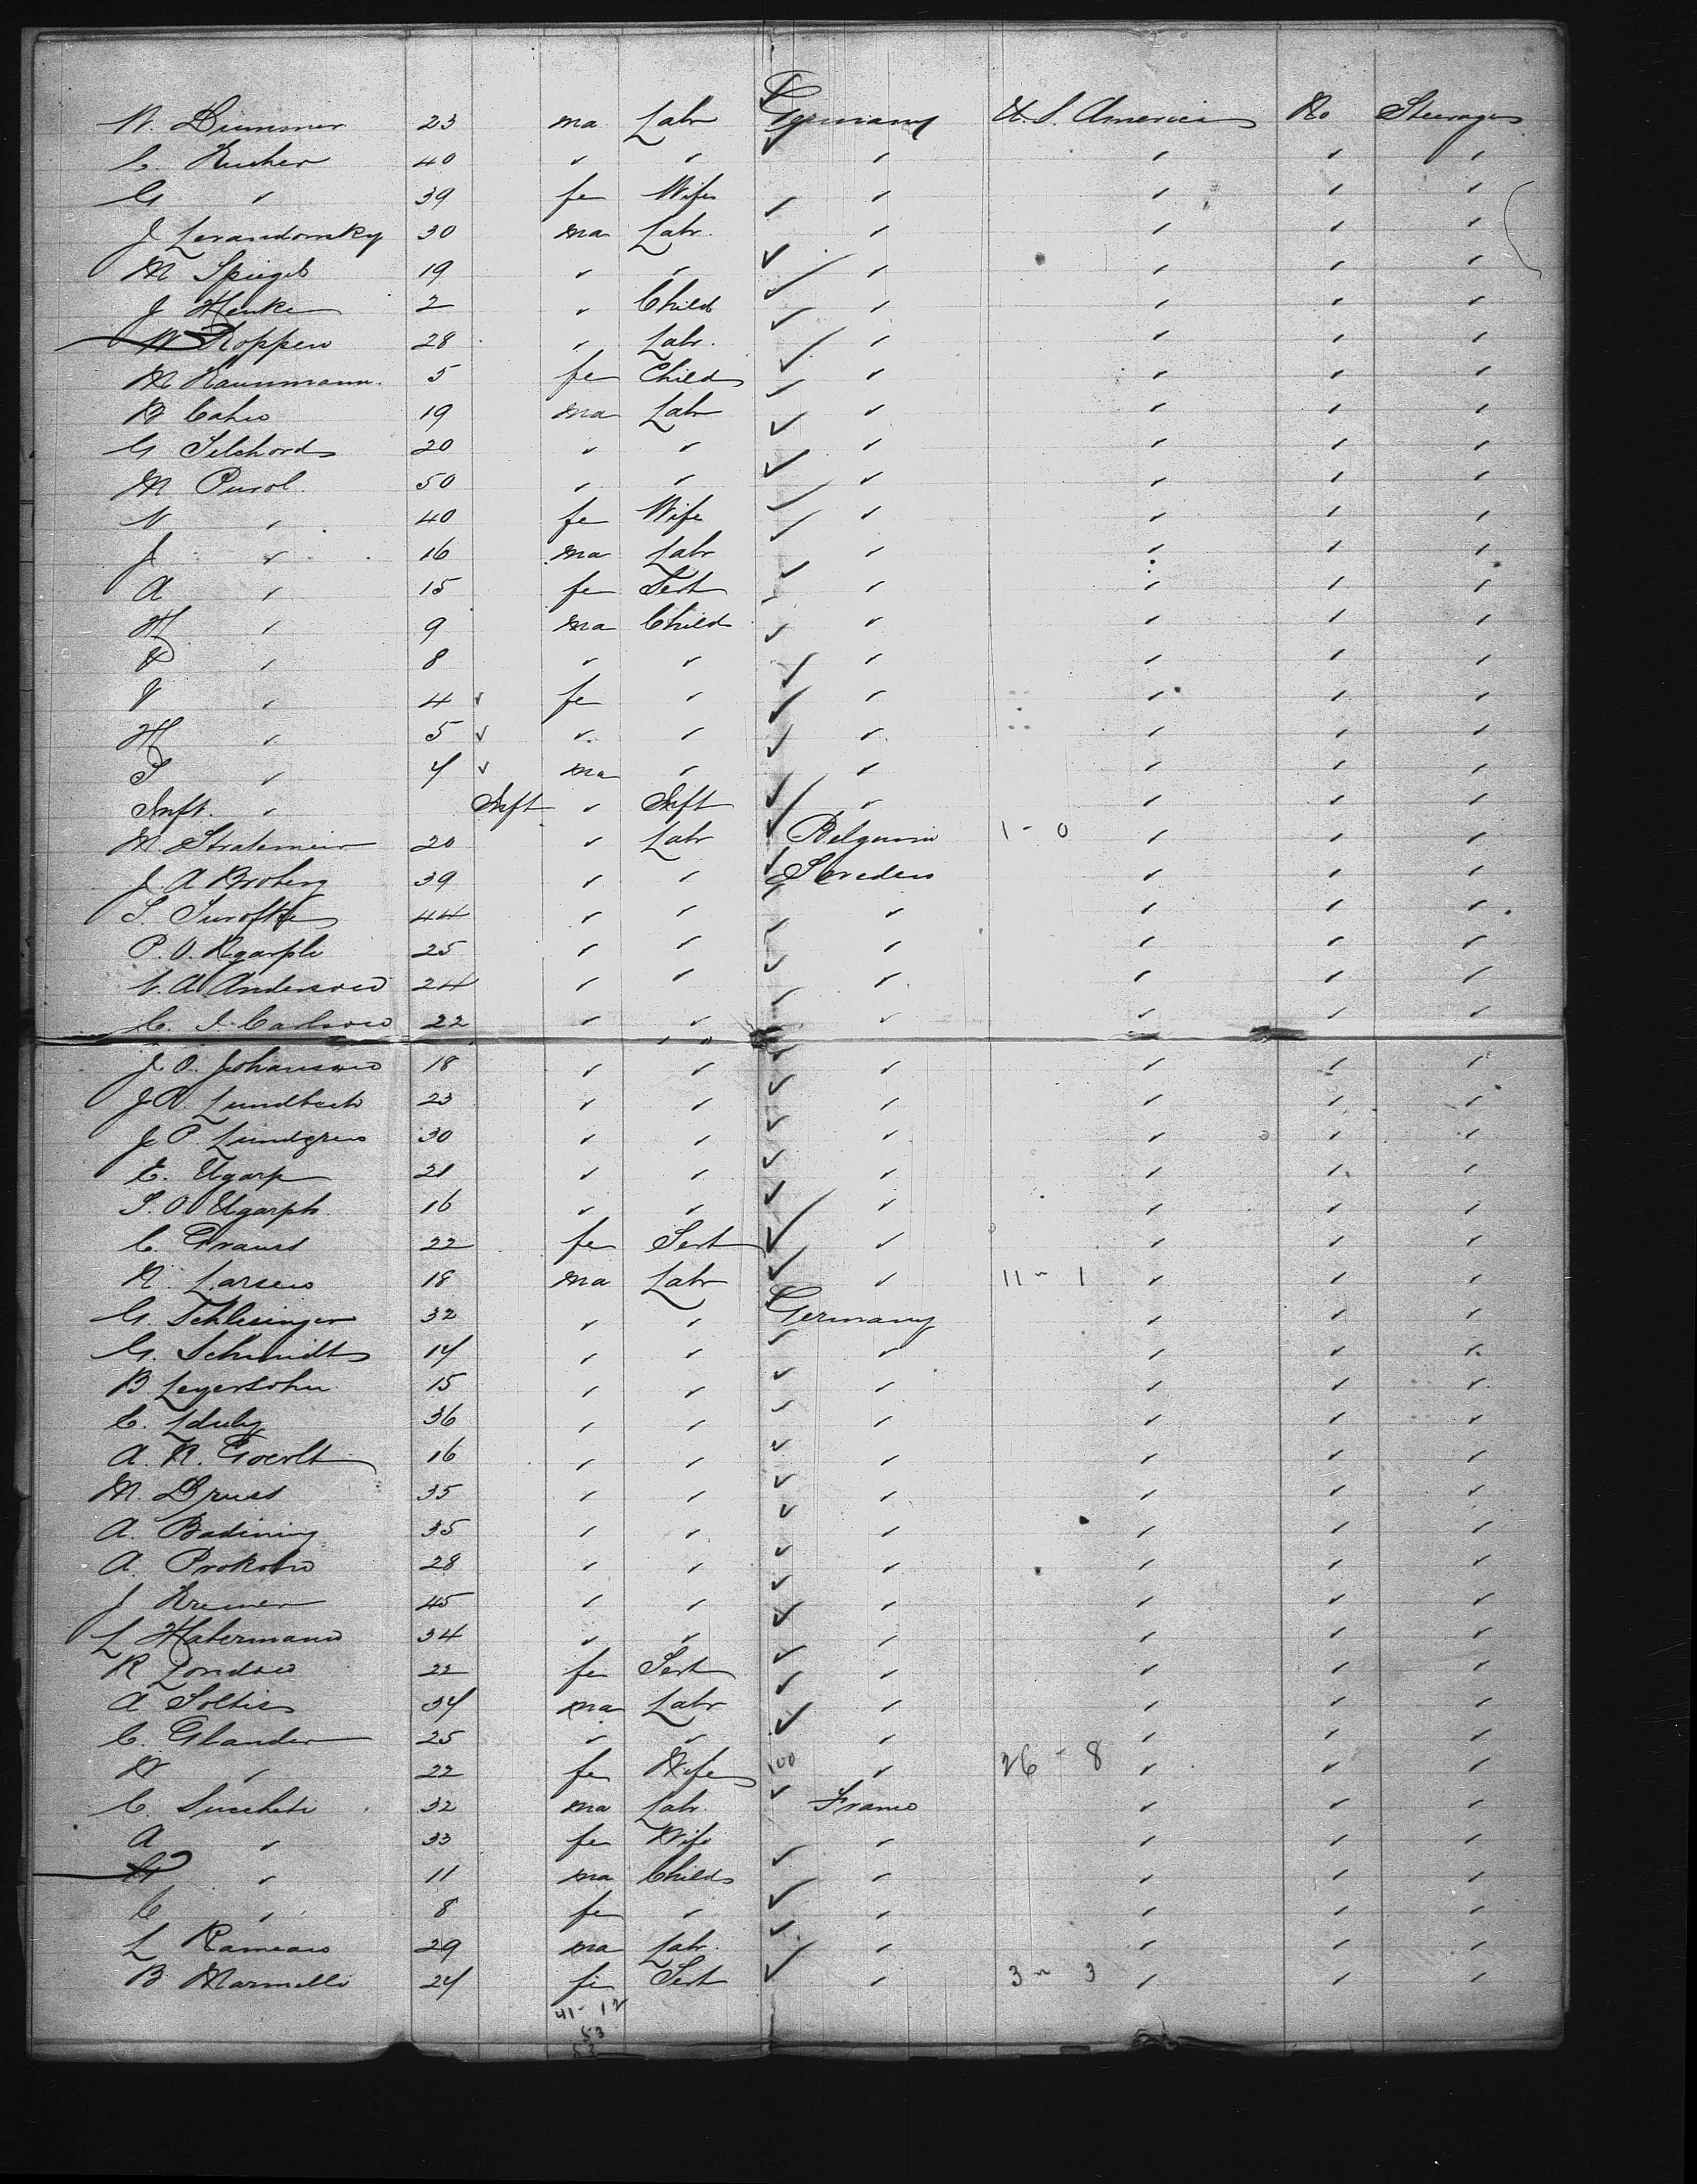 W. Dummer 23 ma Labr Germany U.S. America No Steerage
C. Kucher 40 " " " " " "
G " 39 fe Wife " " " "
J Levandowsky 30 ma Labr. " " " "
M Spiegel 19 " " " " " "
J Henke 2 " Child " " " "
W Koppen 28 " Labr. " " " "
M Naunmann. 5 fe Child " " " "
B Cahn 19 ma Labr " " " "
G Silchord 20 " " " " " "
M Purol. 50 " " " " " "
V " 40 fe Wife " " " "
J " 16 ma Labr " " " "
A " 15 fe Sert " " " "
H " 9 ma Child " " " "
" 8 " " " " " "
V " 4 fe " " " " "
H " 5 " " " " " "
S " 4 ma " " " " "
Inft. " Inft " Inft " " " "
M. Stratemeier 20 " Labr Belguim 1 - 0 " " "
J. A. Broberg 39 " " Sweden " " "
S. 44 " " " " " "
P. O. 25 " " " " " "
N. A. Anderson 24 " " " " " "
C. J. Carlson 22 " " " " " "
J. O. Johanson 18 " " " " " "
J A. Lundbeck 23 " " " " " "
J. P. Lundgren 30 " " " " " "
E. Ugarp 21 " " " " " "
S. O Ugarph. 16 " " " " " "
C. Grauss 22 fe Sert " " " "
N. Larsen 18 ma Labr " 11 - 1 " " "
G. Schlesinger 32 " " Germany " " "
G. Schmidt 14 " " " " " "
B Leyersohn 15 " " " " " "
C. 36 " " " " " "
A. N. 16 " " " " " "
M. Druss 35 " " " " " "
A. Badining 35 " " " " " "
A. Prokohn 28 " " " " " "
J Kremer 45 " " " " " "
L Habermann 34 " " " " " "
R Zondon 22 fe Sert " " " "
A Soltis 34 ma Labr " " " "
C. Glander 25 " " " " " "
W " 22 fe Wife 100 " 26 - 8 " " "
C. Succheti 32 ma Labr. France " " "
A " 33 fe Wife " " " "
" 11 ma Child " " " "
C " 8 fe " " " " "
L Rameau 29 ma Labr. " " " "
B Marmelli 24 fe Sert " 3 - 3 " " "
41 - 12
53
53